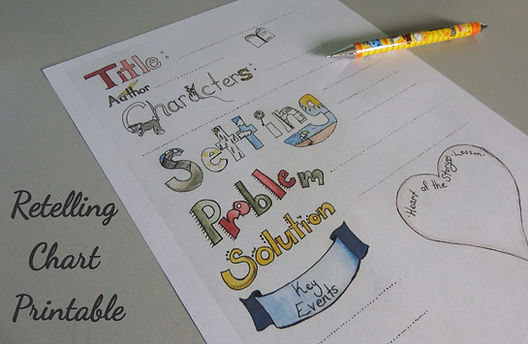 Title:
Author
Characters:
Setting
Problem
Solution
Key
Events
Heart of the Story: Lesson:
Retelling
Chart
Printable